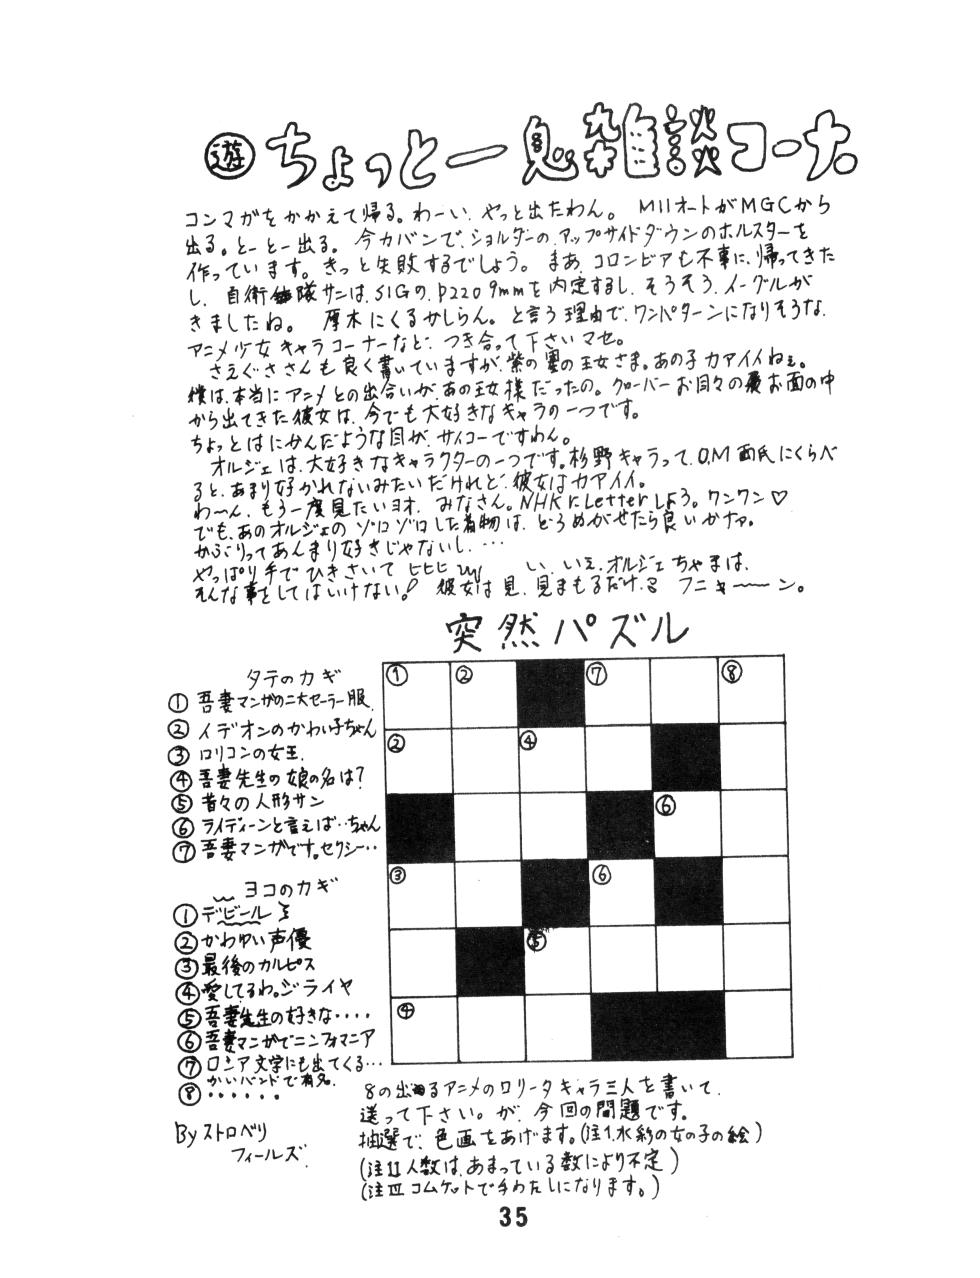 遊 ちょっと一息雑談コーナー
コンマガをかかえて帰る。わーい、やっと出たわん。 M11オートがMGCから
出る。とーとー出る。今カバンで、ショルダーの、アップサイドダウンのホルスターを
作っています。きっと失敗するでしょう。まあ、コロンビアも不事に、帰ってきた
し、自衛隊サンは、SIGの、P220 9mmを内定するし、そろそろ、イーグルが
きましたね。 厚木にくるかしらん。と言う理由で、ワンパターンになりそうな、
アニメ少女キャラコーナーなど、つき合って下さいマセ。
さえぐささんも良く書いていますが、紫の雲の王女さま。あの子カアイイねぇ。
僕は、本当にアニメとの出合いが、あの王女様だったの。グローバーお月々のお面の中
から出てきた彼女は、今でも大好きなキャラの一つです。
ちょっとはにかんだような目が、サイコーですわん。
オルジェは、大好きなキャラクターの一つです。杉野キャラって、O.M両氏にくらべ
ると、あまり好かれないみたいだけれど、彼女はカアイイ。
わーん、もう一度見たいヨオ、みなさん。NHKにLetterしよう。ワンワン♡
でも、あのオルジェの ゾロゾロした着物は、どろめがせたら良いかナァ。
かぶりってあんまり好きじゃないし、…
やっぱり手でひきさいて ヒヒヒ い、いえ、オルジェちゃまは、
そんな事をしてはいけない! 彼女は見、見まもるだけ。 フニャ〜〜ン。
突然パズル
① ② ⑦ ⑧
② ④
⑥
③ ⑥
⑤
④
タテのカギ
① 吾妻マンガの二大セーラー服
② イデオンのかわい子ちゃん
③ ロリコンの女王
④ 吾妻先生の娘の名は?
⑤ 昔々の人形サン
⑥ ライディーンと言えば‥ちゃん
⑦ 吾妻マンガです。セクシー‥
ヨコのカギ
① デビール
② かわゆい声優
③ 最後のカルピス
④ 愛してるわ。ジライヤ
⑤ 吾妻先生の好きな‥‥
⑥ 吾妻マンガでニンフォマニア
⑦ ロシア文学にも出てくる…
かいバンドで有名
⑧ ・・・・・・
By ストロベリ
フィールズ
8の出るアニメのロリータキャラ三人を書いて、
送って下さい。が、今回の問題です。
抽選で、色画をあげます。(注I.水彩の女の子の絵)
(注II 人数は、あまっている数により不定)
(注III コムケットで手わたしになります。)
35